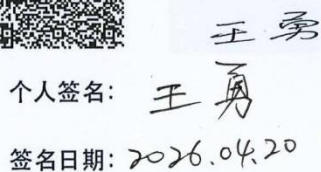 王勇
个人签名：王勇
签名日期：2026.04.20